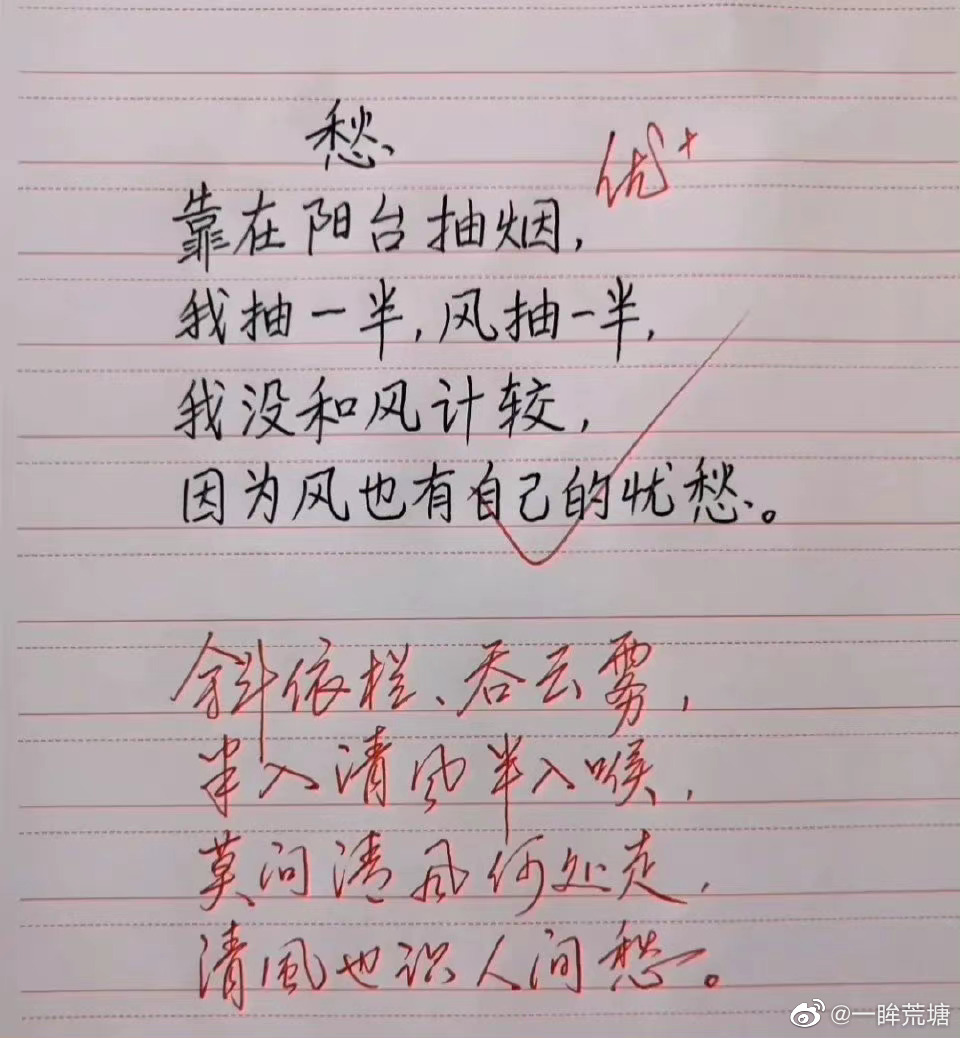 愁
优+
靠在阳台抽烟,
我抽一半,风抽一半,
我没和风计较,
因为风也有自己的忧愁。
斜依栏、吞云雾,
半入清风半入喉,
莫问清风何处走,
清風也识人间愁。
@一眸荒塘